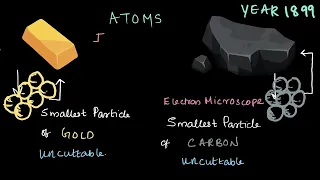 ATOMS
YEAR 1899
Electron Microscope
Smallest Particle
of GOLD
uncuttable
Smallest Particle
of CARBON
uncuttable